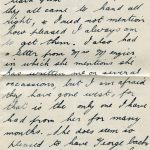 they all came to hand all
right, & I need not mention
how pleased I always am
to get them. I also had
a letter from Mrs
in which she mentions she
has written me on several
occasions but I am afraid
they have gone west for
that is the only one I have
had from her for many
months. She does seem so
pleased to have George back